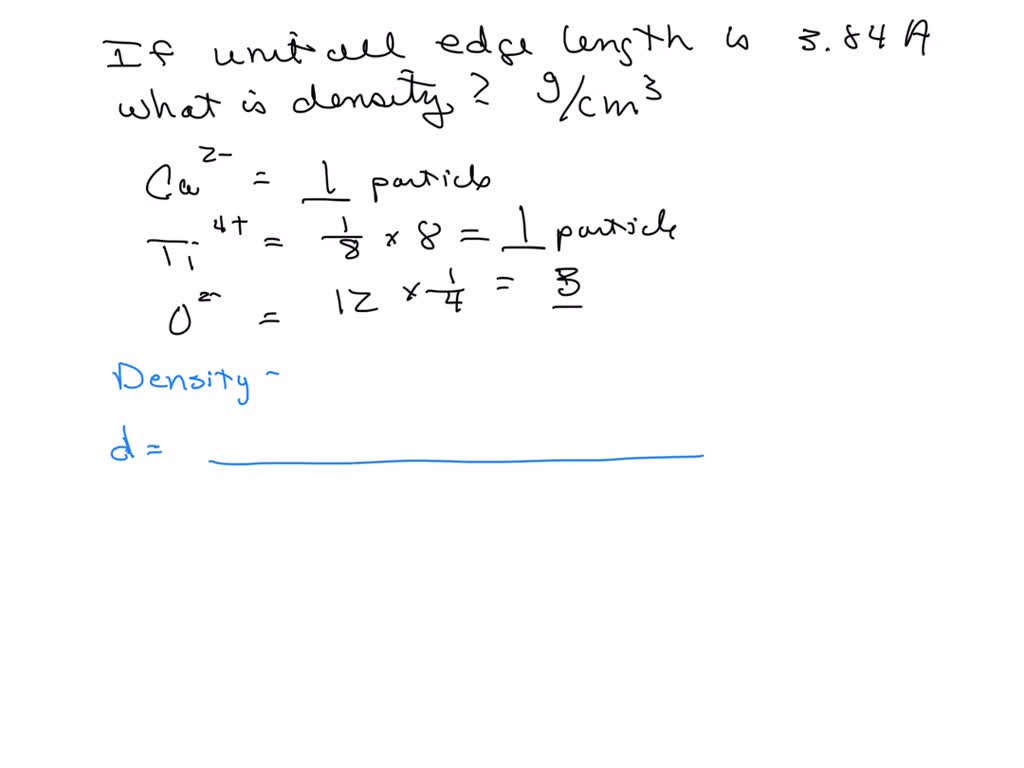 If unit cell edge length is 3.84 A
what is density? g/cm³
Ca²⁻ = 1 particle
Ti⁴⁺ = 1/8 × 8 = 1 particle
O²⁻ = 12 × 1/4 = 3
Density -
d =